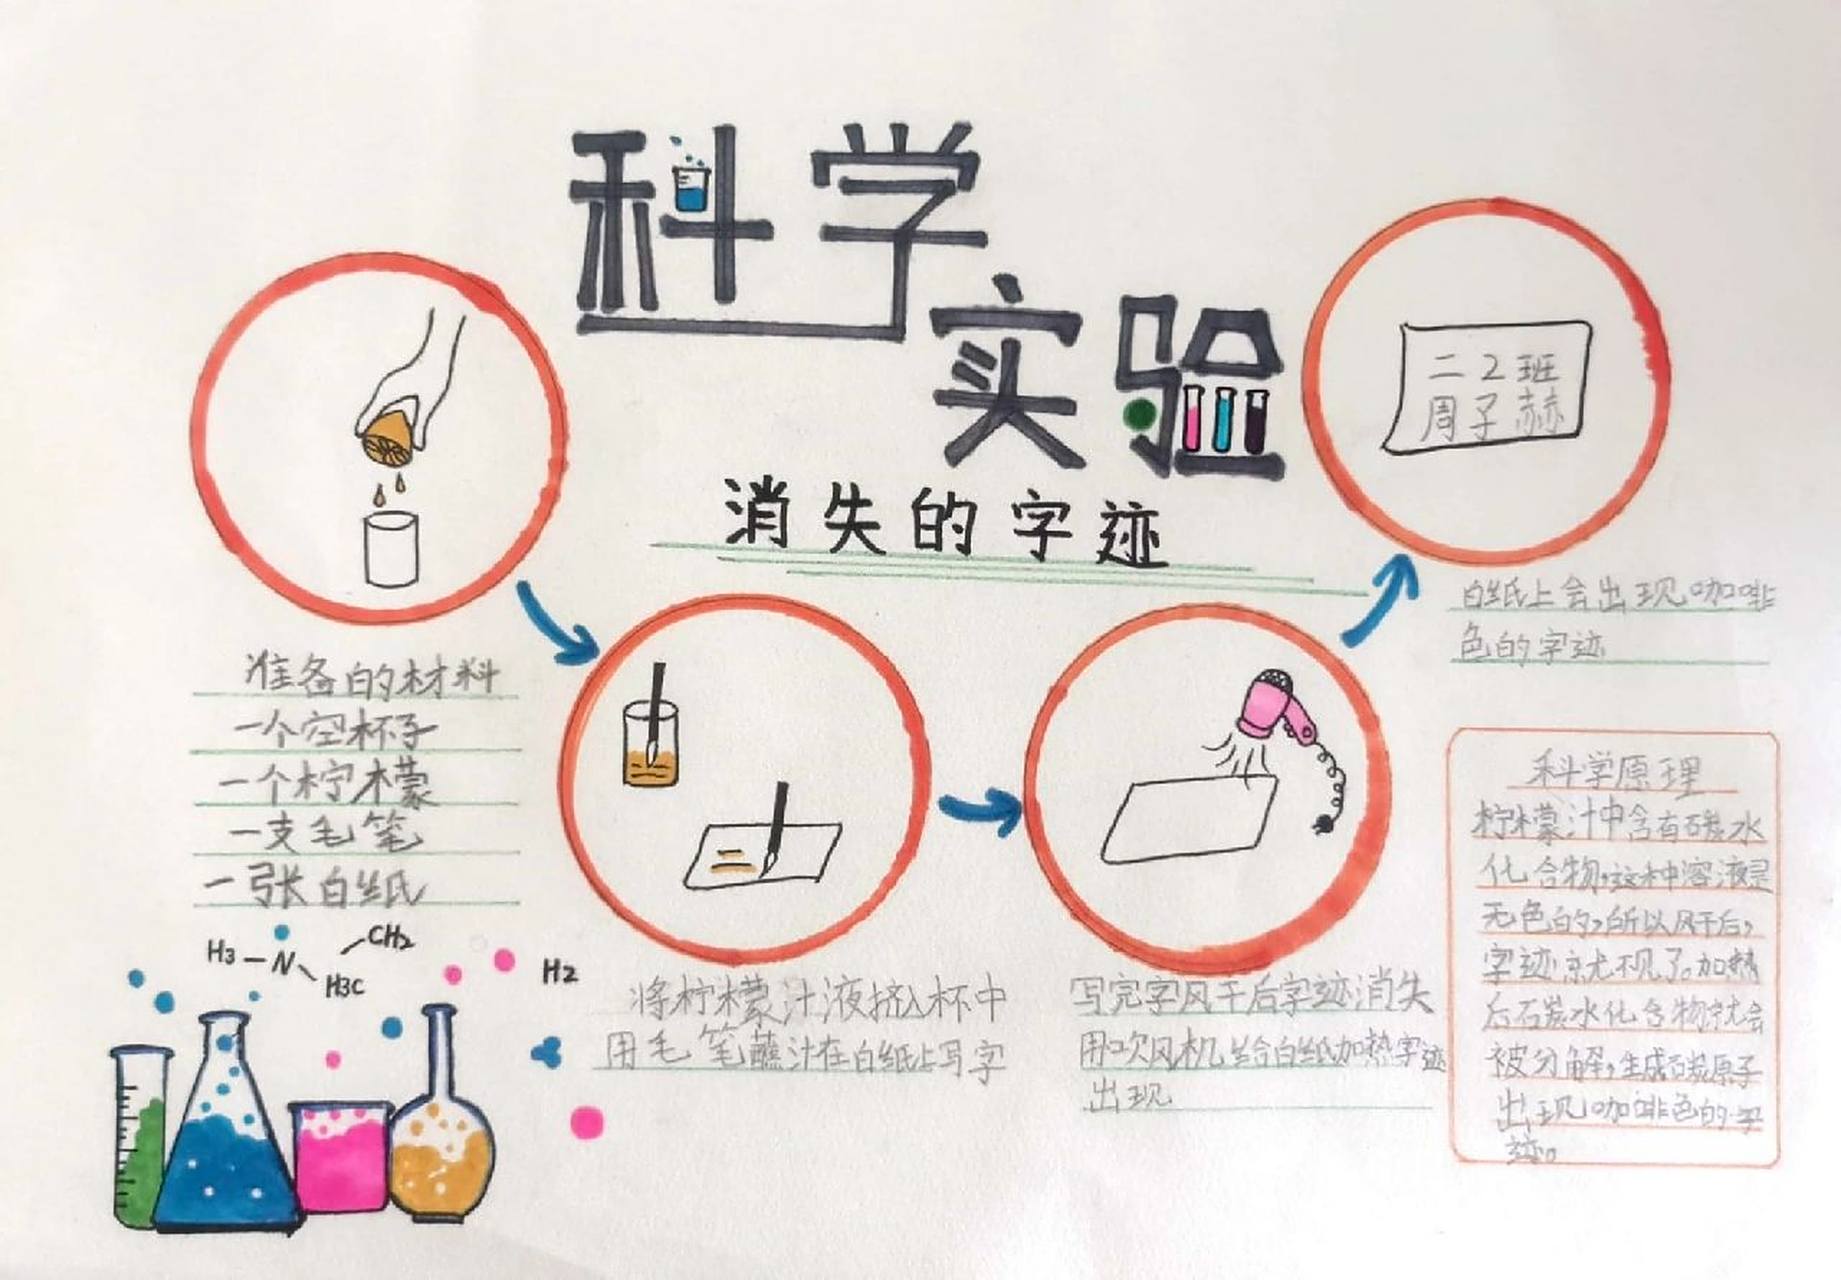 科学
实验
消失的字迹
二2班
周子赫
准备的材料
一个空杯子
一个柠檬
一支毛笔
一张白纸
将柠檬汁液挤入杯中
用毛笔蘸汁在白纸上写字
写完字风干后字迹消失
用吹风机给白纸加热字迹
出现
白纸上会出现咖啡
色的字迹
科学原理
柠檬汁中含有碳水
化合物,这种溶液是
无色的,所以风干后,
字迹就不见了。加热
后石炭水化合物就会
被分解,生成碳原子
出现咖啡色的字
迹。
H3-N
CH2
H3C
H2